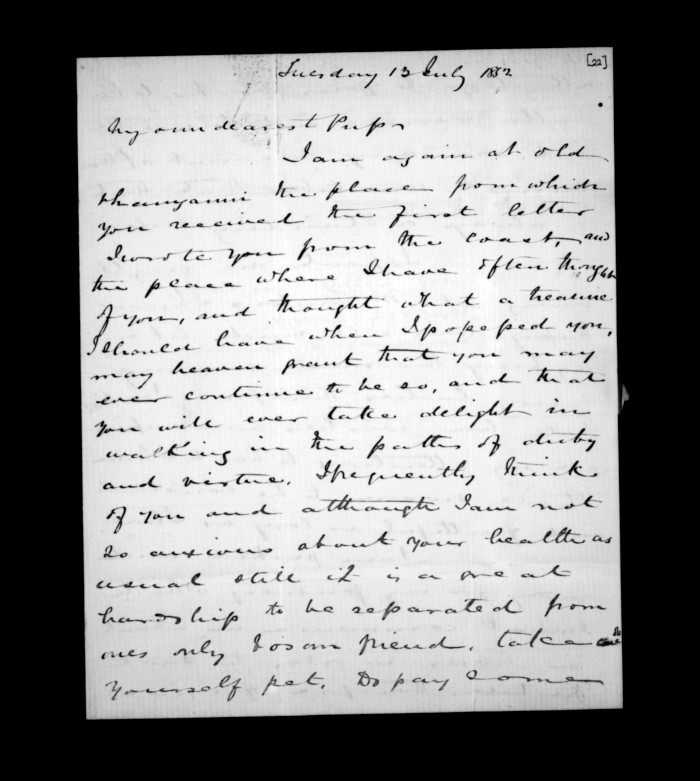 [22]
Tuesday 13 July 1852
My own dearest Pups
I am again at old
the place from which
you received the first letter
I wrote you from the coast, and
the place where I have often thought
of you, and thought what a treasure
I should have when I popeped you,
may heaven grant that you may
ever continue to be so, and that
you will ever take delight in
walking in the paths of duty
and virtue. I frequently think
of you and although I am not
so anxious about your health as
usual still it is a great
hardship to be separated from
ones only bosom friend. take
yourself pet. Do pay some